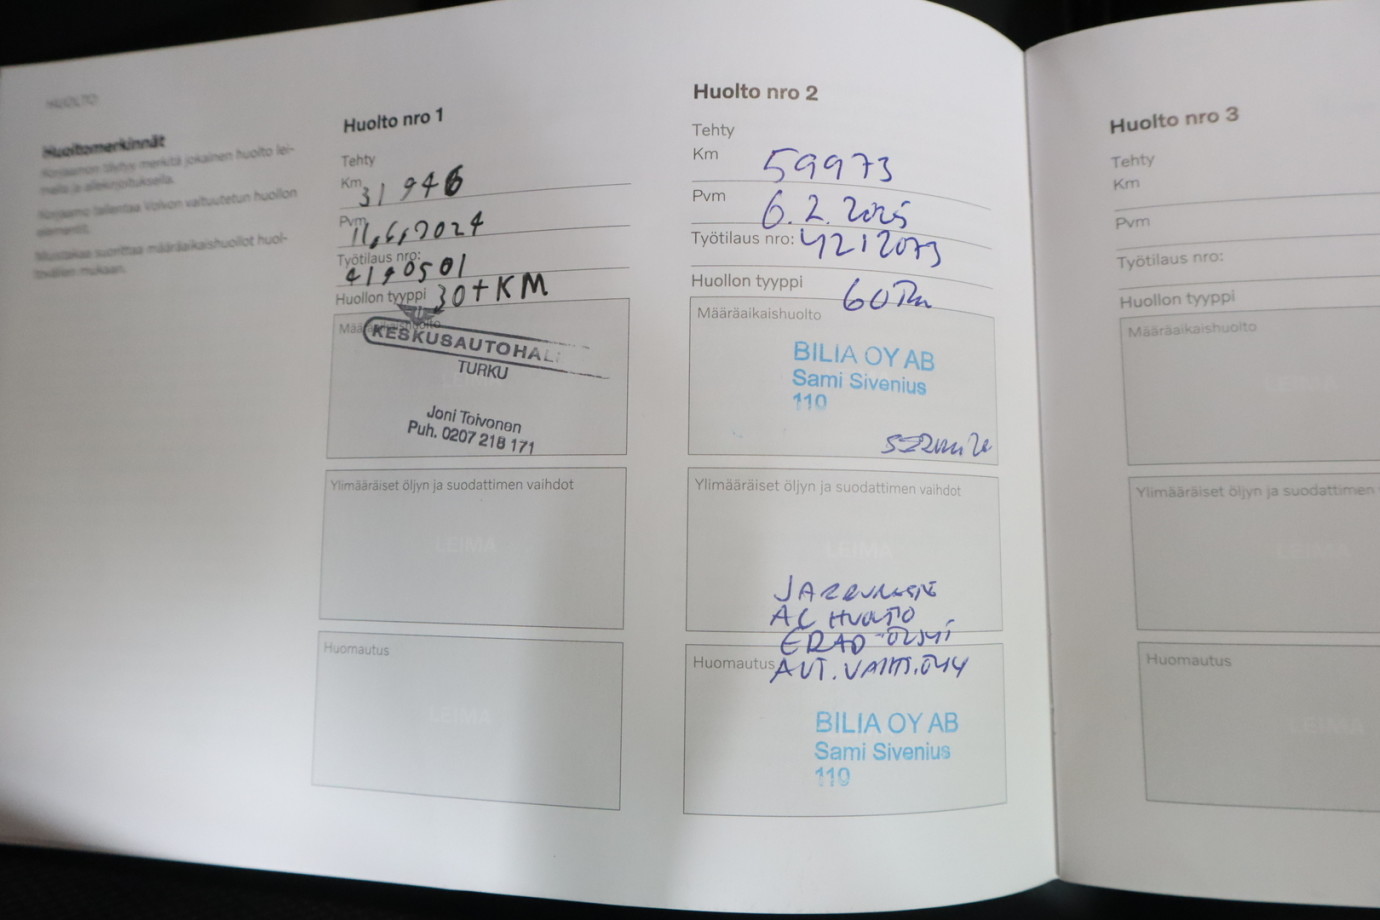 HUOLTO
Huoltomerkinnät
Korjaamon täytyy merkitä jokainen huolto lei-
malla ja allekirjoituksella.
Korjaamo tallentaa Volvon valtuutetun huollon
Muistakaa suorittaa määräaikaishuollot huol-
mukaan.
Huolto nro 1
Tehty
Km 31 946
Pvm 11.6.2024
Työtilaus nro:
4190501
Huollon tyyppi 30tKM
Määräaikaishuolto
KESKUSAUTOHAL
TURKU
LEIMA
Joni Toivonen
Puh. 0207 218 171
Ylimääräiset öljyn ja suodattimen vaihdot
LEIMA
Huomautus
LEIMA
Huolto nro 2
Tehty
Km 59973
Pvm 6.2.2025
Työtilaus nro: 4212073
Huollon tyyppi
Määräaikaishuolto
BILIA OY AB
Sami Sivenius
110
Ylimääräiset öljyn ja suodattimen vaihdot
LEIMA
JARRUNESTE
AC HUOLTO
ERAD-ÖLJY
Huomautus AUT.VAIHT.ÖLJY
BILIA OY AB
Sami Sivenius
110
Huolto nro 3
Tehty
Km
Pvm
Työtilaus nro:
Huollon tyyppi
Määräaikaishuolto
LEIMA
Ylimääräiset öljyn ja suodattimen
LEIMA
Huomautus
LEIMA